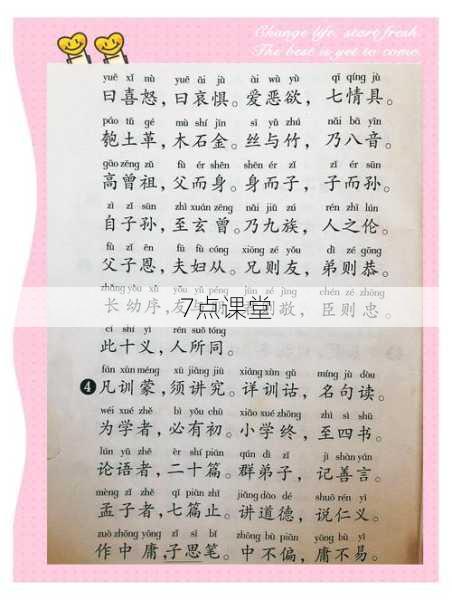 Change life, start fresh.
The best is yet to come
yuē xǐ nù yuē āi jù ài wù yù qī qíng jù
曰喜怒，曰哀惧。爱恶欲，七情具。
páo tǔ gé mù shí jīn sī yǔ zhú nǎi bā yīn
匏土革，木石金。丝与竹，乃八音。
gāo zēng zǔ fù ér shēn shēn ér zǐ zǐ ér sūn
高曾祖，父而身。身而子，子而孙。
zì zǐ sūn zhì xuán zēng nǎi jiǔ zú rén zhī lún
自子孙，至玄曾。乃九族，人之伦。
fù zǐ ēn fū fù cóng xiōng zé yǒu dì zé gōng
父子恩，夫妇从。兄则友，弟则恭。
zhǎng yòu xù yǒu yǔ péng jūn zé jìng chén zé zhōng
长幼序，友 则敬，臣则忠。
7点课堂
cǐ shí yì rén suǒ tóng
此十义，人所同。
fán xùn méng xū jiǎng jiū xiáng xùn gǔ míng jù dòu
4 凡训蒙，须讲究。详训诂，名句读。
wéi xué zhě bì yǒu chū xiǎo xué zhōng zhì sì shū
为学者，必有初。小学终，至四书。
lún yǔ zhě èr shí piān qún dì zǐ jì shàn yán
论语者，二十篇。群弟子，记善言。
mèng zǐ zhě qī piān zhǐ jiǎng dào dé shuō rén yì
孟子者，七篇止。讲道德，说仁义。
zuò zhōng yōng zǐ sī bǐ zhōng bù piān yōng bú yì
作中庸，子思笔。中不偏，庸不易。